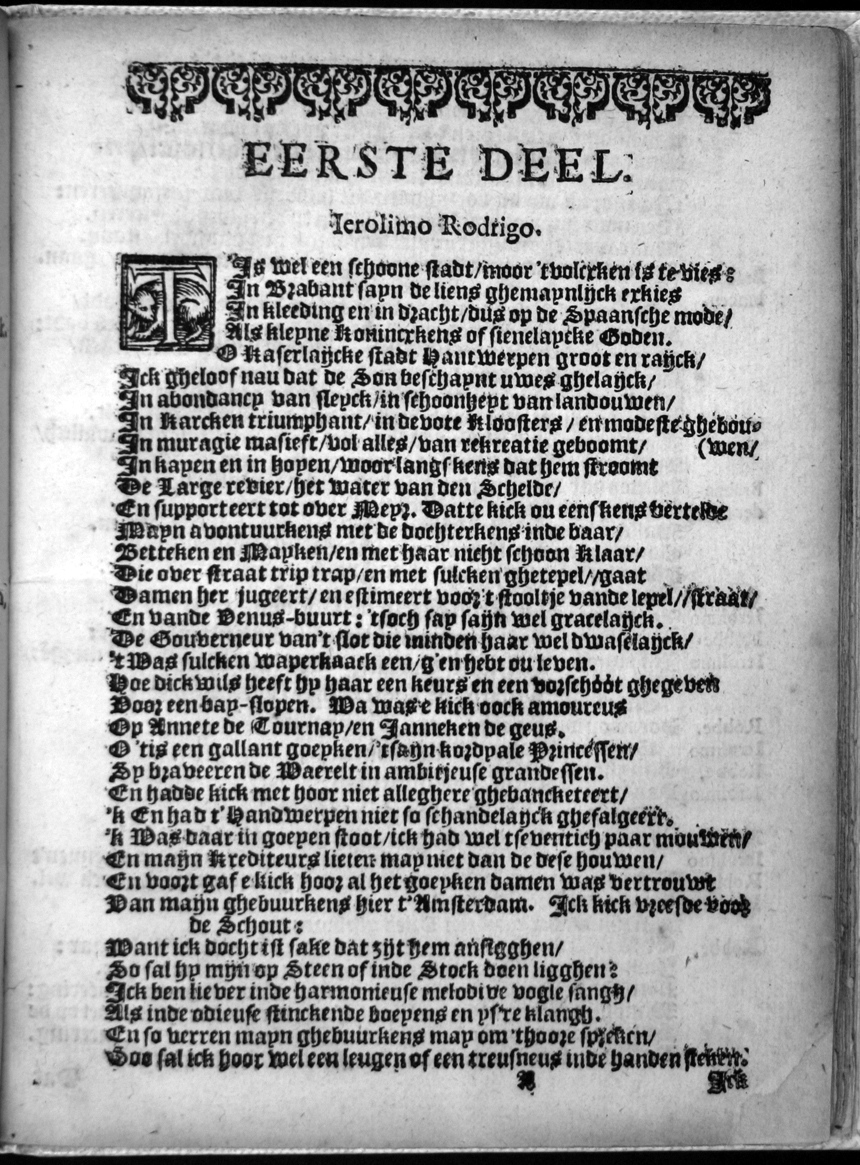 EERSTE DEEL.
Ierolimo Rodrigo.
T'Is wel een schoone stadt/moor 'tvolcxken is te vies:
In Brabant sayn de liens ghemaynlijck exkies
In kleeding en in dracht/dus op de Spaansche mode/
Als kleyne Konincxkens of sienelaycke Goden.
O Kaserlaijcke stadt Hantwerpen groot en raijck/
Ick gheloof nau dat de Son beschaynt uwes ghelaijck/
In abondancy van sleyck/in schoonheyt van landouwen/
In Karcken triumphant/in devote Kloosters/en modeste ghebou-
In muragie masieft/vol alles/van rekreatie geboomt/ (wen/
In kayen en in hoyen/woor langs kens dat hem stroomt
De Large revier/het water van den Schelde/
En supporteert tot over Meyr. Datte kick ou eenskens vertelde
Mayn avontuurkens met de dochterkens inde baar/
Betteken en Mayken/en met haar nicht schoon Klaar/
Die over straat trip trap/en met sulcken ghetepel//gaat
Damen her jugeert/en estimeert voor't stooltje vande lepel//straat/
En vande Venus-buurt: 'tsoch say saijn wel gracelayck.
De Gouverneur van't slot die minden haar wel dwaselayck/
't Was sulcken waperkaack een/g'en hebt ou leven.
Hoe dickwils heeft hy haar een keurs en een vorschóót ghegeven
Voor een bay-slopen. Wa was e kick oock amoureus
Op Annete de Tournay/en Janneken de geus.
O 'tis een gallant goeyken/'tsayn kordyale Princessen/
Sy braveeren de Waerelt in ambitjeuse grandessen.
En hadde kick met hoor niet alleghere ghebancketeert/
'k En had t'Handwerpen niet so schandelayck ghefalgeert.
'k Was daar in goeyen stoot/ick had wel tseventich paar mouwen/
En maijn Krediteurs lieten may niet dan de dese houwen/
En voort gaf e kick hoor al het goeyken damen was vertrouwt
Van maijn ghebuurkens hier t'Amsterdam. Ick kick vreesde voor
de Schout:
Want ick docht ist sake dat zijt hem ansegghen/
So sal hy mijn op Steen of inde Stock doen ligghen:
Ick ben liever inde harmonieuse melodive vogle sangh/
Als inde odieuse stinckende boeyens en ys're klangh.
En so verren mayn ghebuurkens may om 'thoore spreken/
Soo sal ick hoor wel een leugen of een treusneus inde handen steken.
A Ick